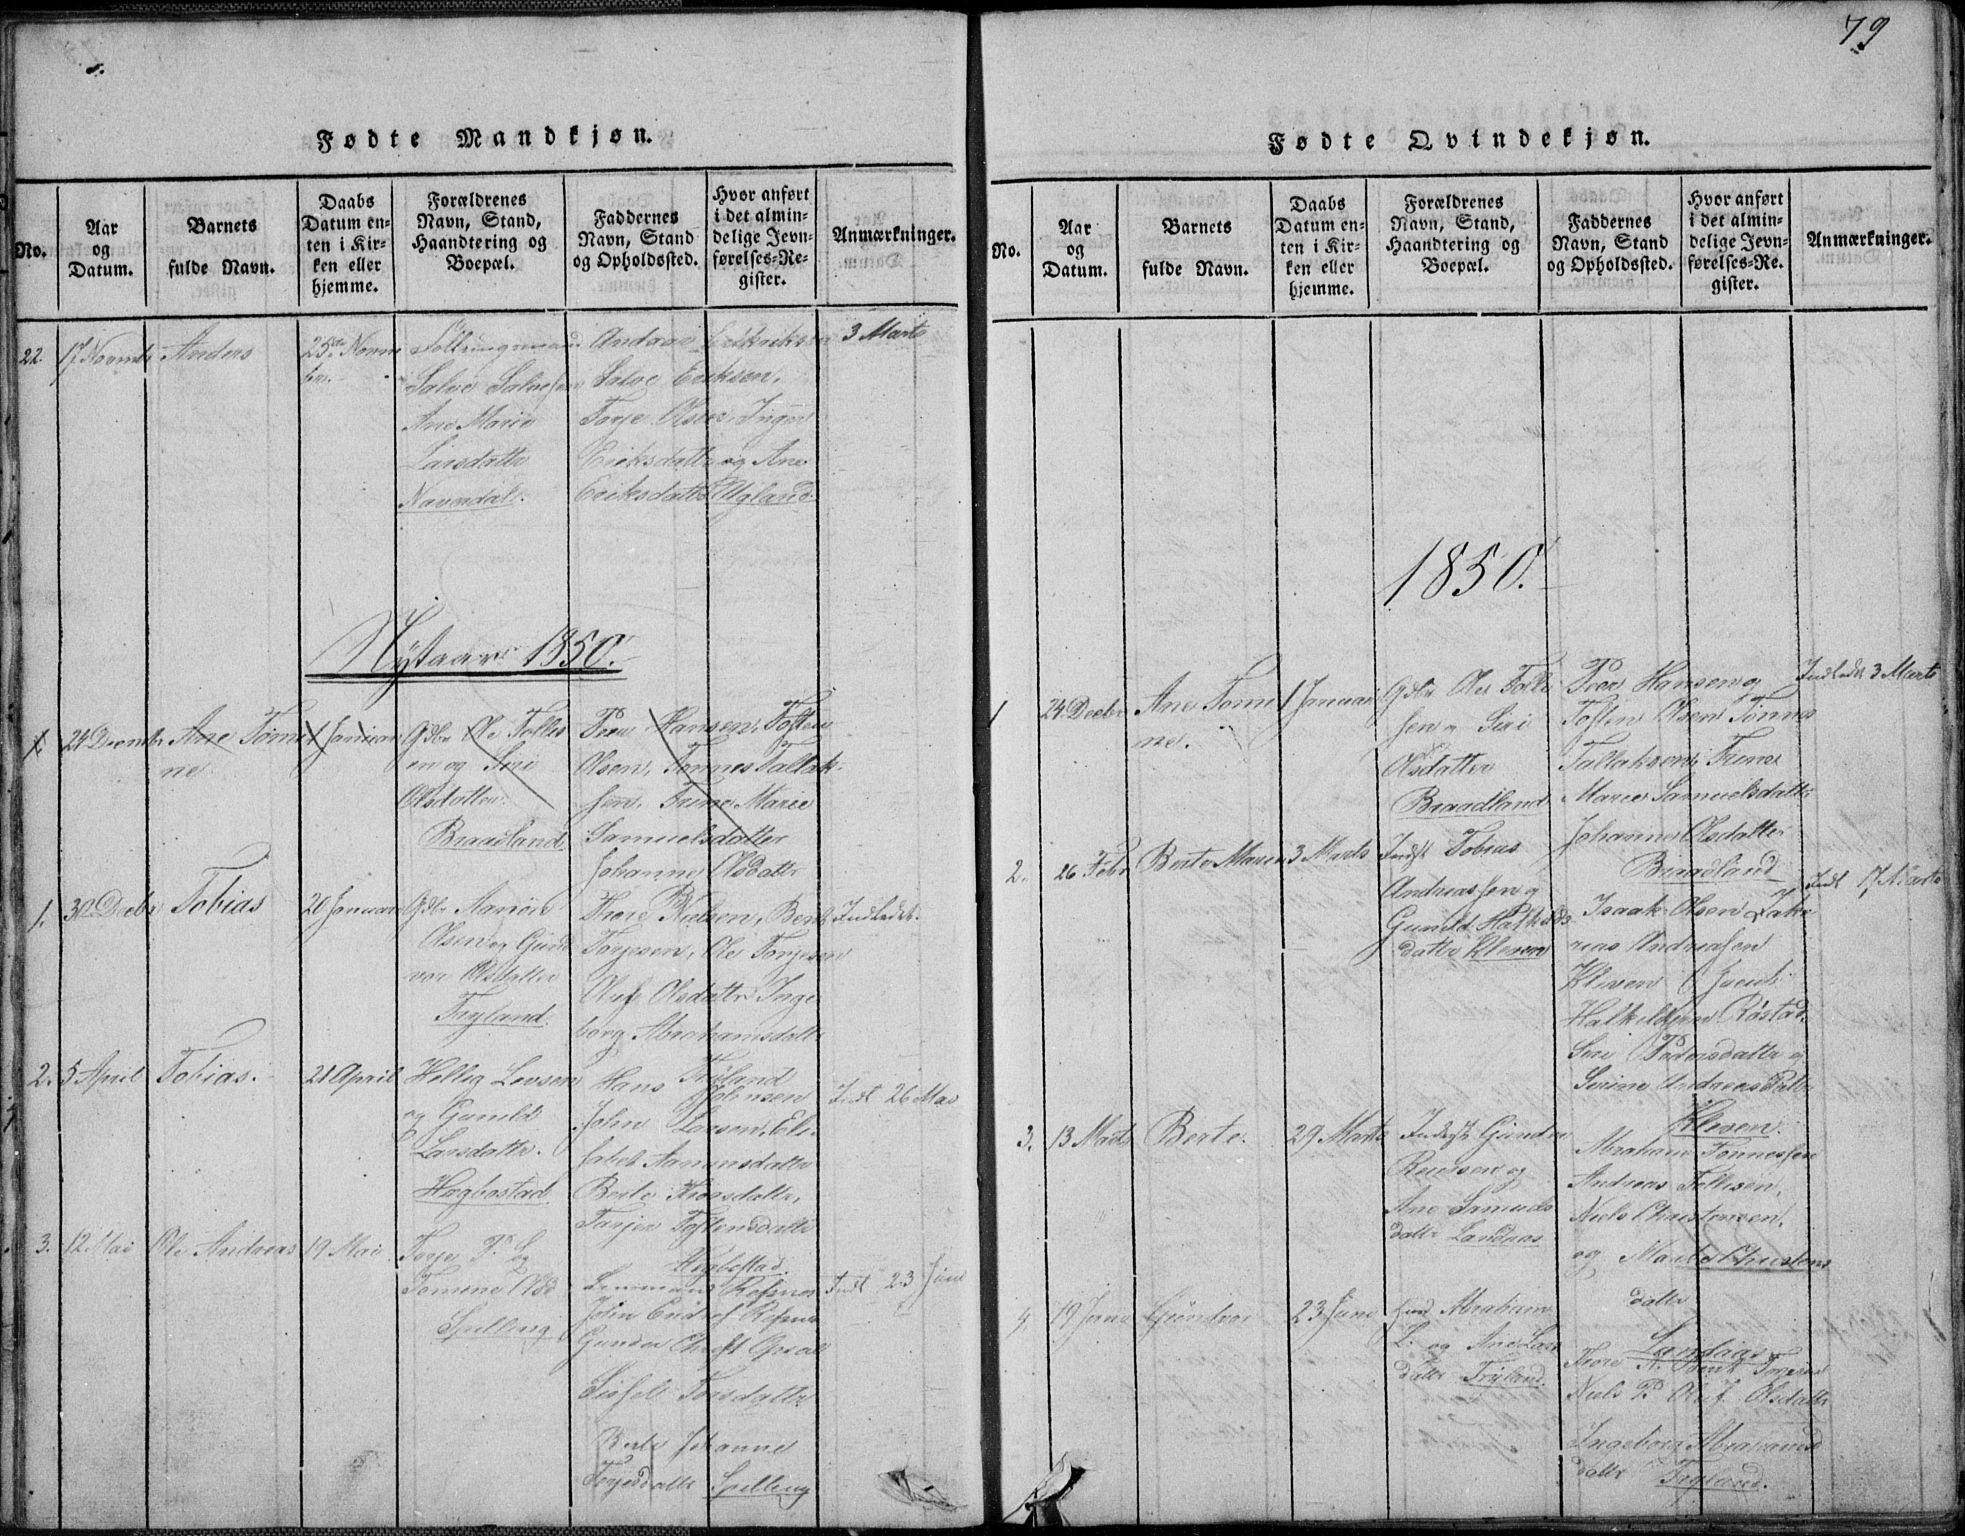 79
Fødte Mandkjøn.
No.
Aar
og
Datum.
Barnets
fulde Navn.
Daabs
Datum en-
ten i Kir-
ken eller
hjemme.
Forældrenes
Navn, Stand,
Haandtering og
Boepæl.
Faddernes
Navn, Stand
og Opholdssted.
Hvor anført
i det almin-
delige Jevn-
førelses-Re-
gister.
Anmærkninger.
22.
17 Novmb
Anders
25de Novm
ber.
Salve Salvesen
Ane Marie
Larsdatter
Navndal.
Salve Eriksen,
Torje Olsen, Inger
Eriksdatter og Ane
Eriksdatter Ugland
3 Marts
Nytaar 1850.
1.
24 Decmbr
Ane Tomi
ne.
1 Januar
Gdbr Ole Tolles
en og Siri
Olsdatter
Braadland
Peer Hansen, Tosten
Olsen, Tønnes Tallak-
sen, Trine Marie
Samuelsdatter
Johanne Olsdattr
1.
30 Decbr
Tobias
20 Januar
Gdbr Aanon
Olsen og Gund
vor Olsdatter
Fryland.
Thore Nielsen, Bent
Torjesen, Ole Torjesen
Oluf Olsdattr Inge
borg Abrahamsdattr
Fryland
Indledet.
2.
5 April
Tobias.
21 April
Hellig Levsen
og Gunild
Larsdatter.
Hægbostad
Hans Johnsen
John Larsen, Eli
sabet Aanensdattr
Berte Thorsdattr,
Torjer Tostensdattr
Hægbostad.
Indt 26 Mai
3.
12 Mai
Ole Andreas
19 Mai
Torje
Tomine Olsd
Spilling
John
Gunder
Sissel Torsdattr
Berte Johanne
Torjesdattr Spilling
Indt 23 Juni
Fødte Qvindekjøn.
No.
Aar
og
Datum.
Barnets
fulde Navn.
Daabs
Datum en-
ten i Kir-
ken eller
hjemme.
Forældrenes
Navn, Stand,
Haandtering og
Boepæl.
Faddernes
Navn, Stand
og Opholdssted.
Hvor anført
i det almin-
delige Jevn-
førelses-Re-
gister.
Anmærkninger.
1850.
1
24 Decbr
Ane Tomi
ne.
1 Januar
Gdbr Ole Tolle
sen og Siri
Olsdatter
Braadland
Peer Hansen og
Tosten Olsen Tønnes
Tallaksen, Trine
Marie Samuelsdattr
Johanne Olsdatter
Braadland
Indledet 3 Marts
2.
26 Febr
Berte Maren
3 Marts
Indst Tobias
Andreassen og
Gunild Halkilds
datter Kleven
Isaak Olsen Zaka
rias Andreasen
Kleven
Halkildsen Røstad.
Siri Pedersdattr og
Serine Andreasdattr
Kleven.
Indt 17 Marts
3.
13 Marts
Berte.
29 Marts
Inderst Gunder
Reiersen og
Ane Samuels
dattr Landaas
Abraham Tønnessen
Andreas Tollisen,
Niels Christensen,
og Marte Christens
datter
Landaas
4
19 Juni
Gundvor
23 Juni
Abraham
L. og Ane Lars
dattr Fryland.
Thore N. Bent Torjesen
Niels P. Oluf Olsdattr
Ingeborg Abrahamsd
dattr Fryland.